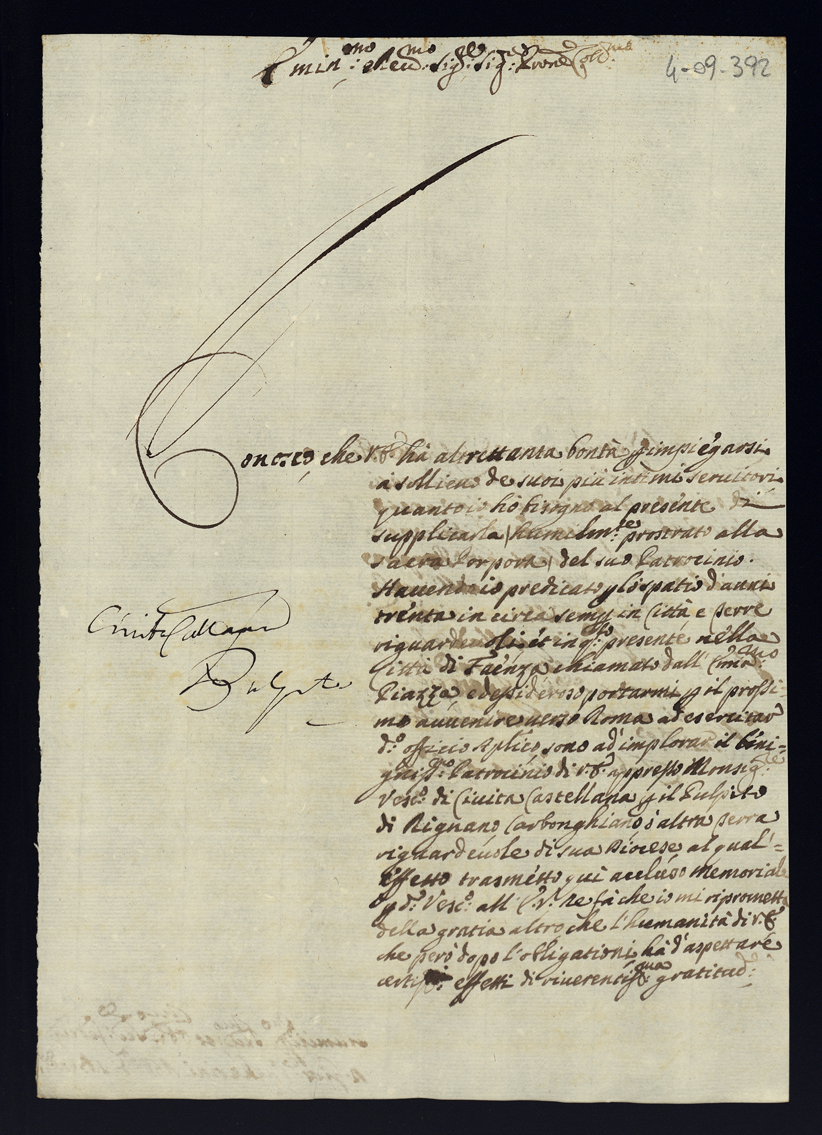 Emin:mo e Reu:mo Sig:re Sig:re e Prone Col:mo
4-09-392
Conosco che V.E. hà altrettanta bontà d'impiegarsi
a sollieuo de suoi più intimi seruitori
quanto io hò bisogno al presente di
supplicarla humilm:te prostrato alla
sacra Porpora del suo Patrocinio.
Hauendo io predicato p lo spatio d'anni
trenta in circa semp in Città e Terre
riguardeuoli, et in q:to presente nella
Città di Faenza chiamato dall' Emin:mo
Piazza, e desideroso portarmi p il prossi-
mo auuenire uerso Roma ad esercitar
d:o officio Aplico, sono ad' implorar il beni=
gniss:o Patrocinio di V.E. appresso Monsig:re
Vesc:o di Ciuita Castellana p il Pulpito
di Rignano, ò altra Terra
riguardeuole di sua Diocese, al qual'=
effetto trasmetto qui accluso memoriale
p d:o Vesc:o all' E.V. Ne fà che io mi riprometta
della gratia altro che l'humanità di V.E.
che però dopo l'obligationi hà d'aspettare
effetti di riuerentiss:ma gratitud:e
Ciuita Castellana
Pulpito